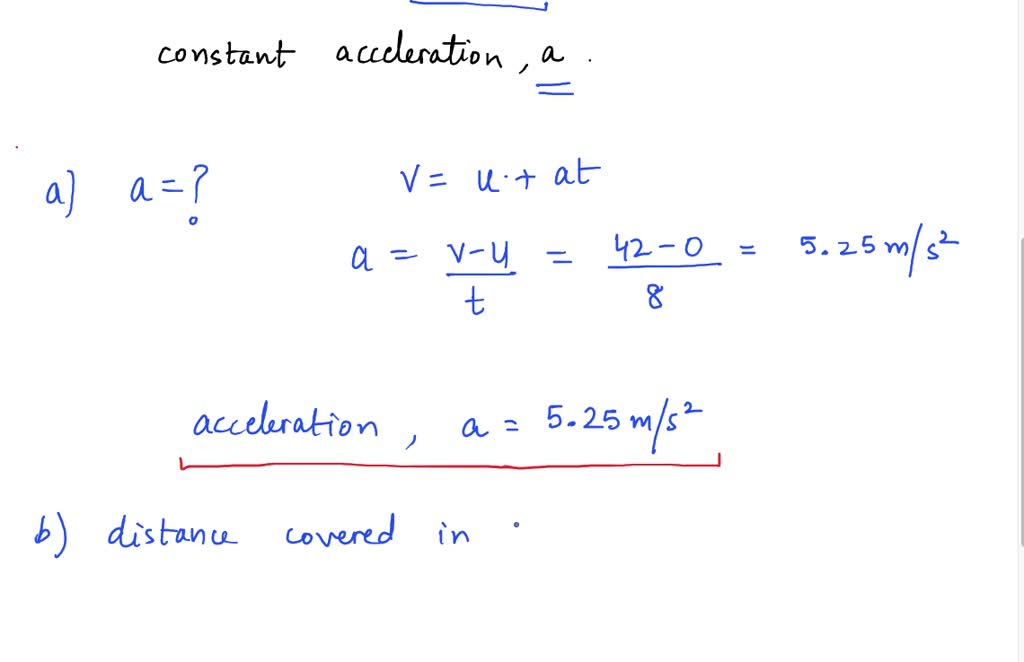 constant acceleration, a.
a) a = ? v = u + at
a = v-u/t = 42-0/8 = 5.25 m/s²
acceleration, a = 5.25 m/s²
b) distance covered in